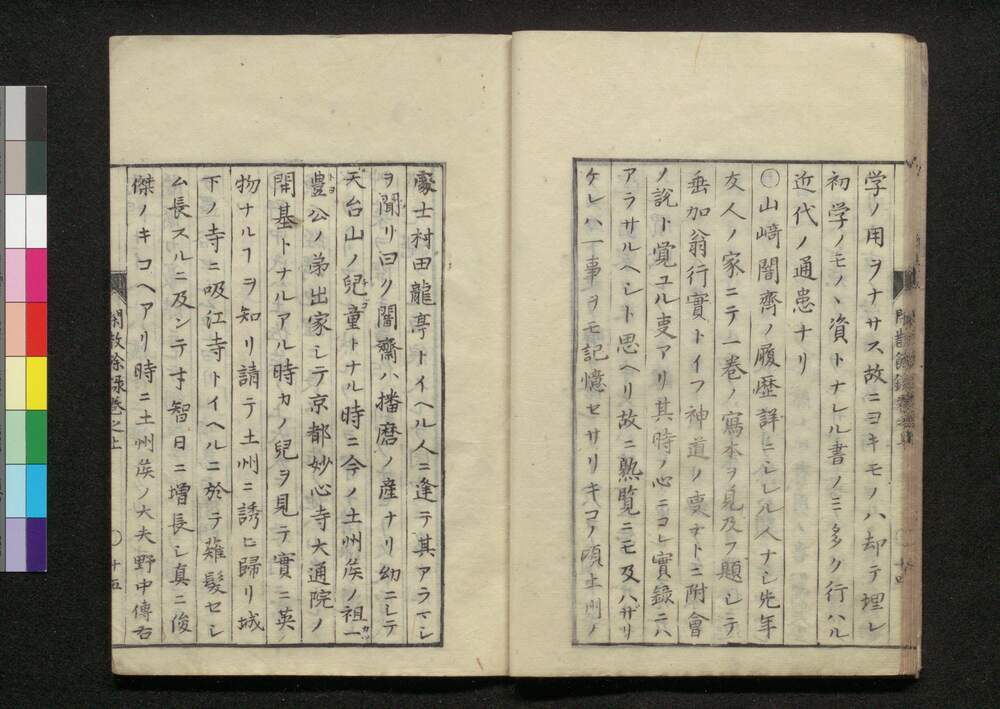 学ノ用ヲナサス故ニヨキモノハ却テ埋レ
初学ノモノヽ資トナレル書ノミ多ク行ハル
近代ノ通患ナリ
山﨑闇齊ノ履歴詳ニシレル人ナシ先年
友人ノ家ニテ一巻ノ寫本ヲ見及フ題シテ
垂加翁行實トイフ神道ノ叓ナトニ附會
ノ説ト覚ユル叓アリ其時ノ心ニコレ實録ニハ
アラサルヘシト思ヘリ故ニ熟覧ニモ及ハザリ
ケレハ一事ヲモ記憶セサリキコノ頃土州ノ
豪士村田龍亭トイヘル人ニ逢テ其アラマシ
ヲ聞リ曰ク闇齋ハ播磨ノ産ナリ幼ニシテ
天台山ノ兒童トナル時ニ今ノ土州矦ノ祖一
豊公ノ弟出家シテ京都妙心寺大通院ノ
開基トナルアル時カノ兒ヲ見テ實ニ英
物ナルヿヲ知リ請テ土州ニ誘ヒ歸リ城
下ノ寺ニ吸江寺トイヘルニ於テ薙髮セシ
ム長スルニ及ンテ才智日ニ増長シ真ニ俊
傑ノキコヘアリ時ニ土州矦ノ大夫野中傳右
閑散餘録巻之上
十五